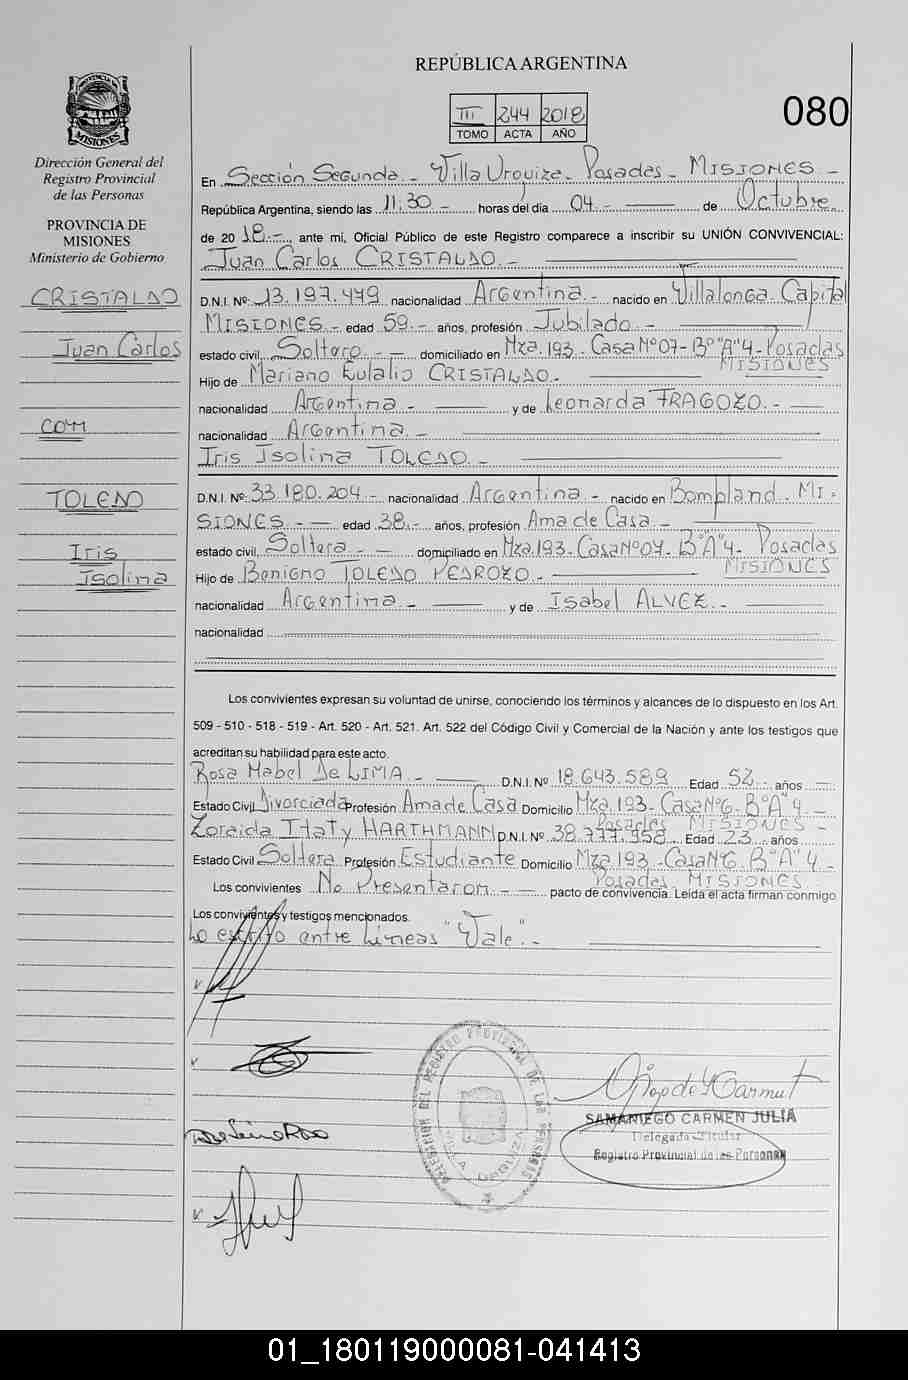 REPÚBLICA ARGENTINA
III 244 2018
TOMO ACTA AÑO
080
PROVINCIA DE
MISIONES
Dirección General del
Registro Provincial
de las Personas
PROVINCIA DE
MISIONES
Ministerio de Gobierno
CRISTALDO
Juan Carlos
COM
TOLEDO
Iris
Isolina
En Sección Segunda.- Villa Urquiza- Posadas - MISIONES -
República Argentina, siendo las 11:30 - horas del día 04.- de Octubre.
de 20 18.- ante mí, Oficial Público de este Registro comparece a inscribir su UNIÓN CONVIVENCIAL:
Juan Carlos CRISTALDO.-
D.N.I. Nº: 13.197.479 nacionalidad Argentina.- nacido en Villalonga. Capital
MISIONES.- edad 59.- años, profesión Jubilado.-
estado civil, Soltero.- domiciliado en Mza.193- Casa Nº07- Bº"A"4- Posadas
MISIONES
Hijo de Mariano Eulalio CRISTALDO.-
nacionalidad Argentina.- y de Leonarda FRAGOZO.-
nacionalidad Argentina.-
Iris Isolina TOLEDO.-
D.N.I. Nº: 33.180.204- nacionalidad Argentina.- nacido en Bompland. MI-
SIONES.- edad 38.- años, profesión Ama de Casa.-
estado civil, Soltera.- domiciliado en Mza.193- Casa Nº07- Bº"A"4- Posadas
MISIONES
Hijo de Benigno TOLEDO PEDROZO.-
nacionalidad Argentina.- y de Isabel ALVEZ.-
nacionalidad
Los convivientes expresan su voluntad de unirse, conociendo los términos y alcances de lo dispuesto en los Art.
509 - 510 - 518 - 519 - Art. 520 - Art. 521. Art. 522 del Código Civil y Comercial de la Nación y ante los testigos que
acreditan su habilidad para este acto.
Rosa Mabel De LIMA.- D.N.I. Nº 18.643.589 Edad 52 años
Estado Civil Divorciada Profesión Ama de Casa Domicilio Mza.193- Casa Nº6- Bº"A"4.-
Posadas MISIONES-
Zoraida Itaty HARTHMANN D.N.I. Nº 38.777.958 Edad 23 años
Estado Civil Soltera Profesión Estudiante Domicilio Mza.193- Casa Nº6. Bº"A"4-
Posadas MISIONES
Los convivientes No Presentaron.- pacto de convivencia. Leída el acta firman conmigo
Los convivientes y testigos mencionados.
Lo escrito entre Líneas "Vale".-
DELEGACION DEL REGISTRO PROVINCIAL DE LAS PERSONAS
VILLA URQUIZA
SAMANIEGO CARMEN JULIA
Delegada Titular
Registro Provincial de las Personas
01_180119000081-041413